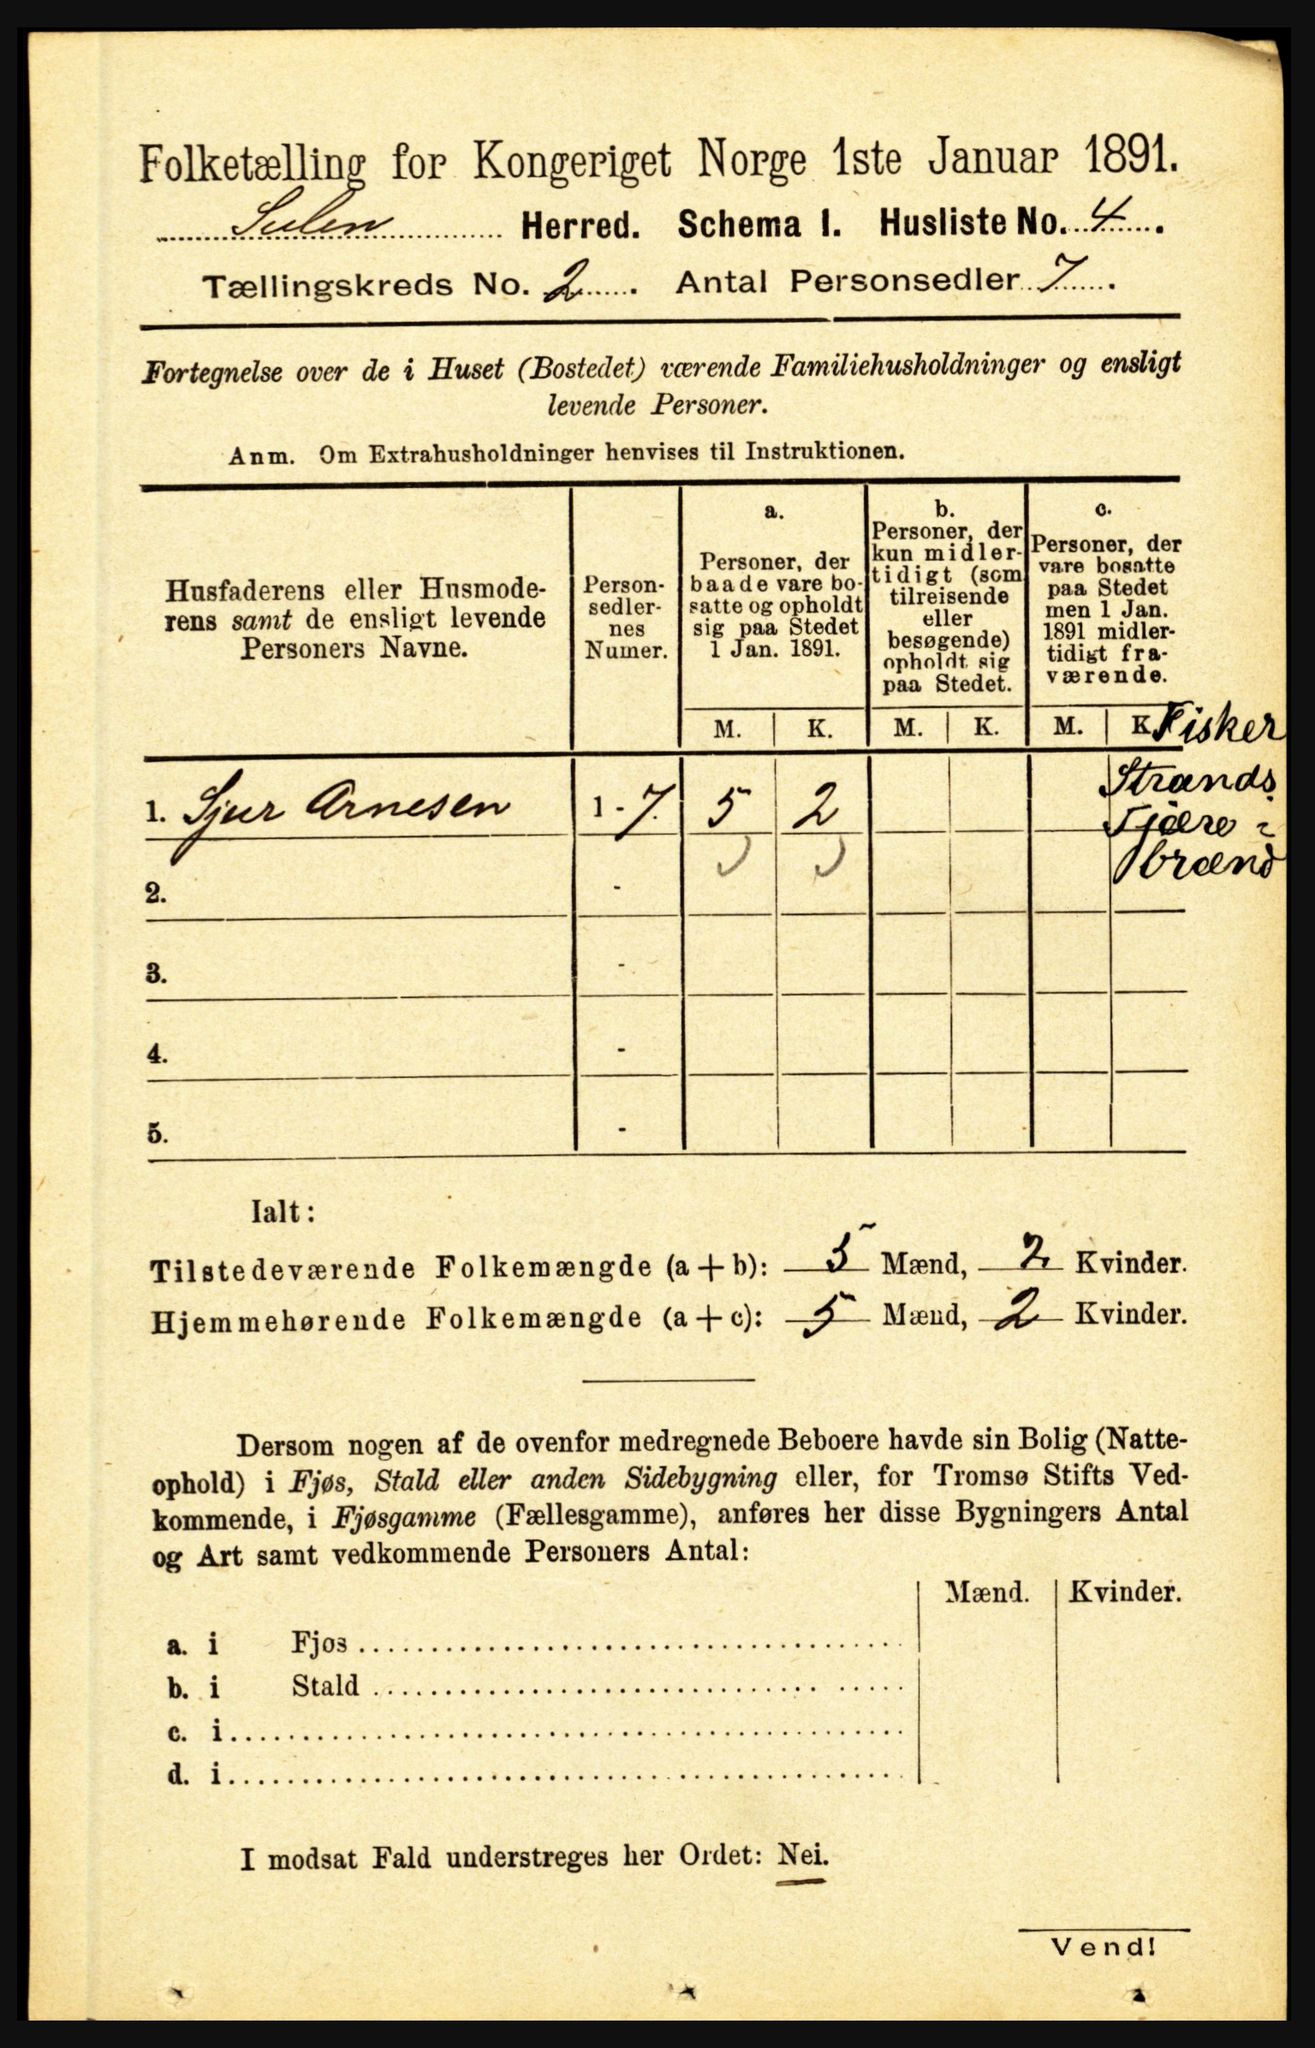 Folketælling for Kongeriget Norge 1ste Januar 1891.
Sulen Herred. Schema I. Husliste No. 4.
Tællingskreds No. 2. Antal Personsedler 7.
Fortegnelse over de i Huset (Bostedet) værende Familiehusholdninger og ensligt
levende Personer.
Anm. Om Extrahusholdninger henvises til Instruktionen.
Husfaderens eller Husmode-
rens samt de ensligt levende
Personers Navne.
Person-
sedler-
nes
Numer.
a.
Personer, der
baade vare bo-
satte og opholdt
sig paa Stedet
1 Jan. 1891.
b.
Personer, der
kun midler-
tidigt (som
tilreisende
eller
besøgende)
opholdt sig
paa Stedet.
c.
Personer, der
vare bosatte
paa Stedet
men 1 Jan.
1891 midler-
tidigt fra-
værende.
M. K. M. K. M. K.
Fisker
Strands.
1. Sjur Arnesen 1 - 7. 5 2
brænd
2. -
3. -
4. -
5. -
Ialt:
Tilstedeværende Folkemængde (a + b): 5 Mænd, 2 Kvinder.
Hjemmehørende Folkemængde (a + c): 5 Mænd, 2 Kvinder.
Dersom nogen af de ovenfor medregnede Beboere havde sin Bolig (Natte-
ophold) i Fjøs, Stald eller anden Sidebygning eller, for Tromsø Stifts Ved-
kommende, i Fjøsgamme (Fællesgamme), anføres her disse Bygningers Antal
og Art samt vedkommende Personers Antal:
Mænd. Kvinder.
a. i Fjøs
b. i Stald
c. i
d. i
I modsat Fald understreges her Ordet: Nei.
Vend!